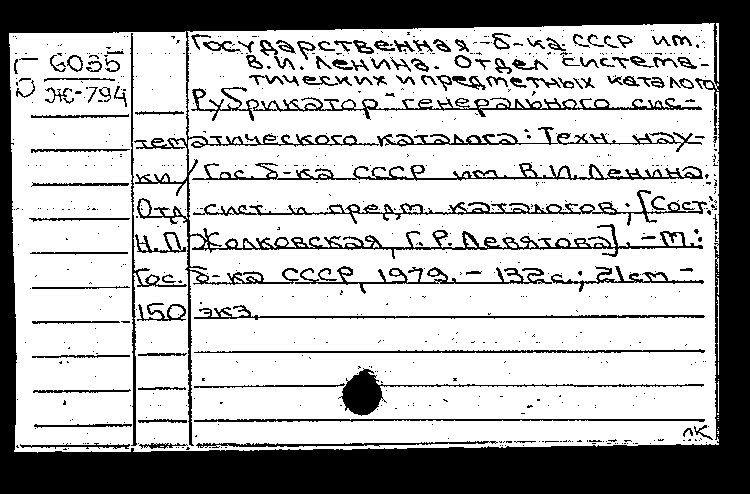 Государственная б-ка СССР им.
В.И. Ленина. Отдел система-
тических и предметных каталого
Б 6035
Ж-794
Рубрикатор генерального сис-
тематического каталога: Техн. нау-
ки / Гос. б-ка СССР им. В.И. Ленина.
Отд. сист. и предм. каталогов; [Сост.:
Н.П. Жолковская, Г.Р. Девятова]. - М.:
Гос. б-ка СССР, 1979. - 132 с.; 21 см. -
150 экз.
лк